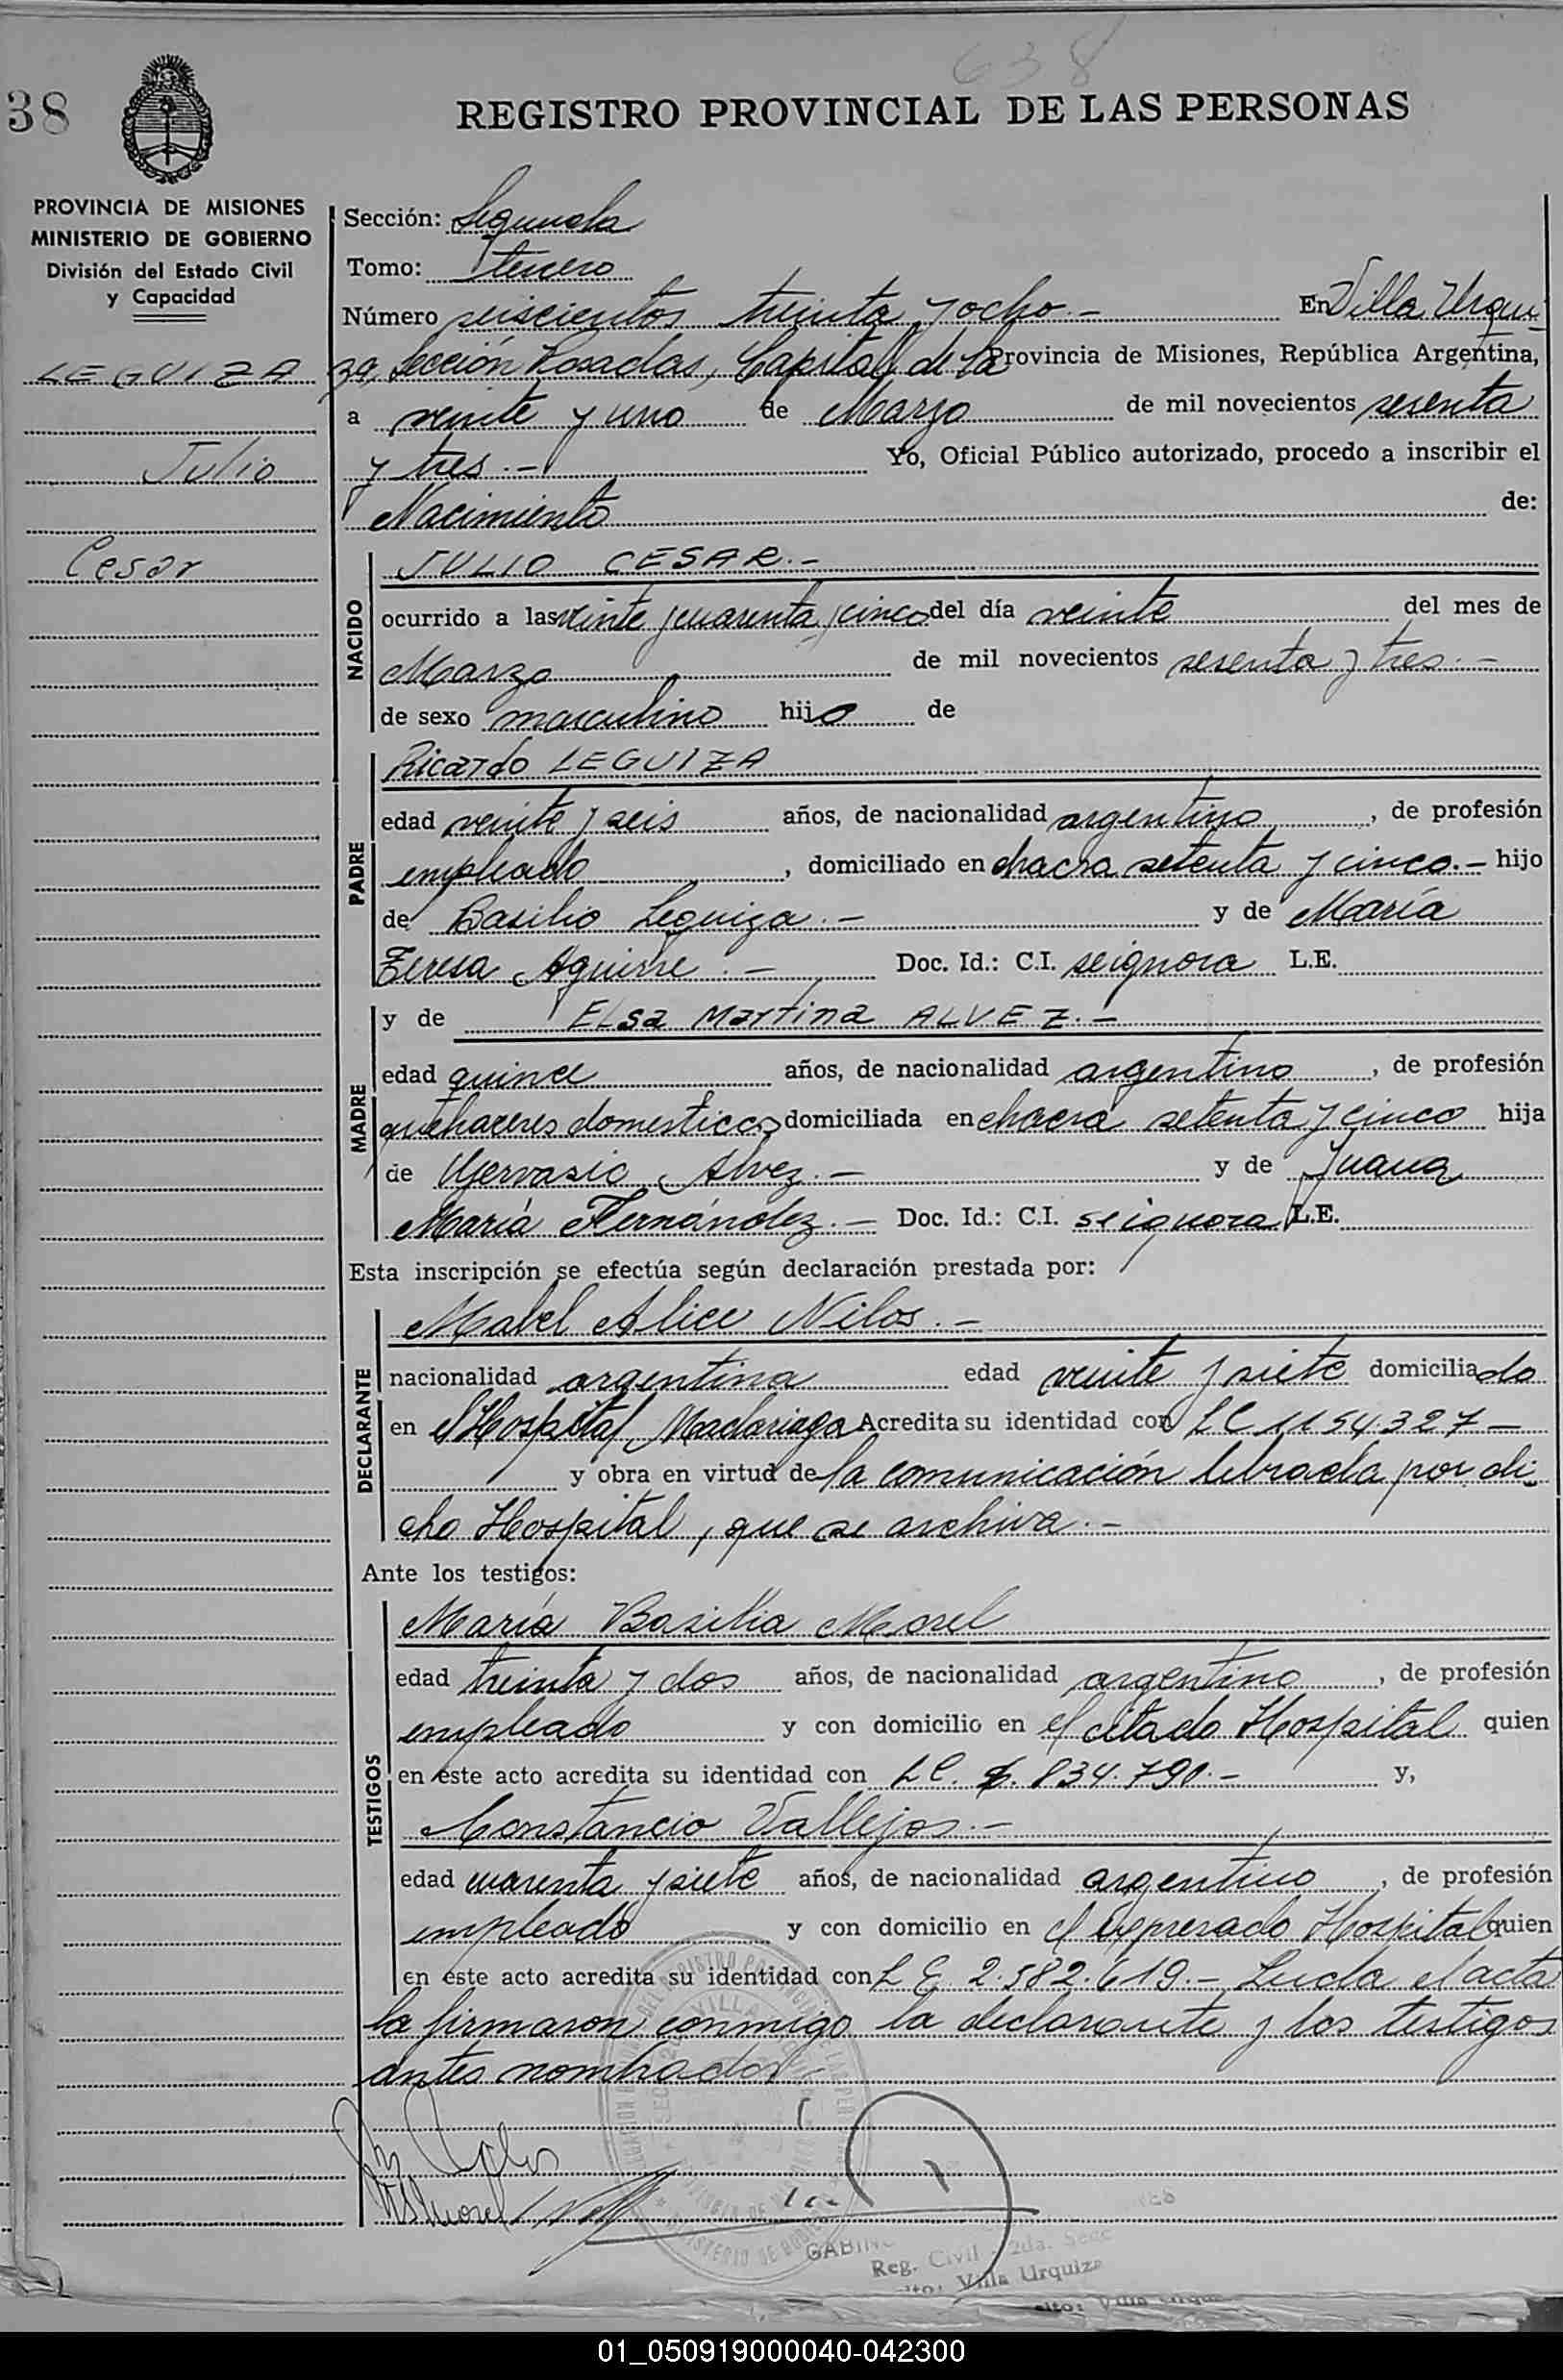 638
38
REGISTRO PROVINCIAL DE LAS PERSONAS
PROVINCIA DE MISIONES
MINISTERIO DE GOBIERNO
División del Estado Civil
y Capacidad
LEGUIZA
Julio
Cesar
Sección: Segunda
Tomo: tercero
Número seiscientos treinta y ocho.- En Villa Urqui-
za, Sección Posadas, Capital de la Provincia de Misiones, República Argentina,
a veinte y uno de Marzo de mil novecientos sesenta
y tres.- Yo, Oficial Público autorizado, procedo a inscribir el
Nacimiento de:
NACIDO
JULIO CESAR.-
ocurrido a las veinte y cuarenta y cinco del día veinte del mes de
Marzo de mil novecientos sesenta y tres.-
de sexo masculino hijo de
PADRE
Ricardo LEGUIZA
edad veinte y seis años, de nacionalidad argentino, de profesión
empleado, domiciliado en chacra setenta y cinco.- hijo
de Basilio Leguiza.- y de María
Teresa Aguirre.- Doc. Id.: C.I. se ignora L.E.
MADRE
y de Elsa Martina ALVEZ.-
edad quince años, de nacionalidad argentino, de profesión
quehaceres domesticos domiciliada en chacra setenta y cinco hija
de Gervasio Alvez.- y de Juana
María Fernández.- Doc. Id.: C.I. se ignora L.E.
Esta inscripción se efectúa según declaración prestada por:
DECLARANTE
Mabel Alice Nilos.-
nacionalidad argentina edad veinte y siete domiciliada
en el Hospital Madariaga Acredita su identidad con LC 1154.327-
y obra en virtud de la comunicación librada por di-
cho Hospital, que se archiva.-
Ante los testigos:
TESTIGOS
María Basilia Morel
edad treinta y dos años, de nacionalidad argentino, de profesión
empleado y con domicilio en el citado Hospital quien
en este acto acredita su identidad con LC. 6.834.790.- y,
Constancio Vallejos.-
edad cuarenta y siete años, de nacionalidad argentino, de profesión
empleado y con domicilio en el expresado Hospital quien
en este acto acredita su identidad con L E 2.582.619.- Leida el acta
la firmaron conmigo la declarante y los testigos
antes nombrados.-
Reg. Civil 2da. Secc
Villa Urquiza
01_050919000040-042300